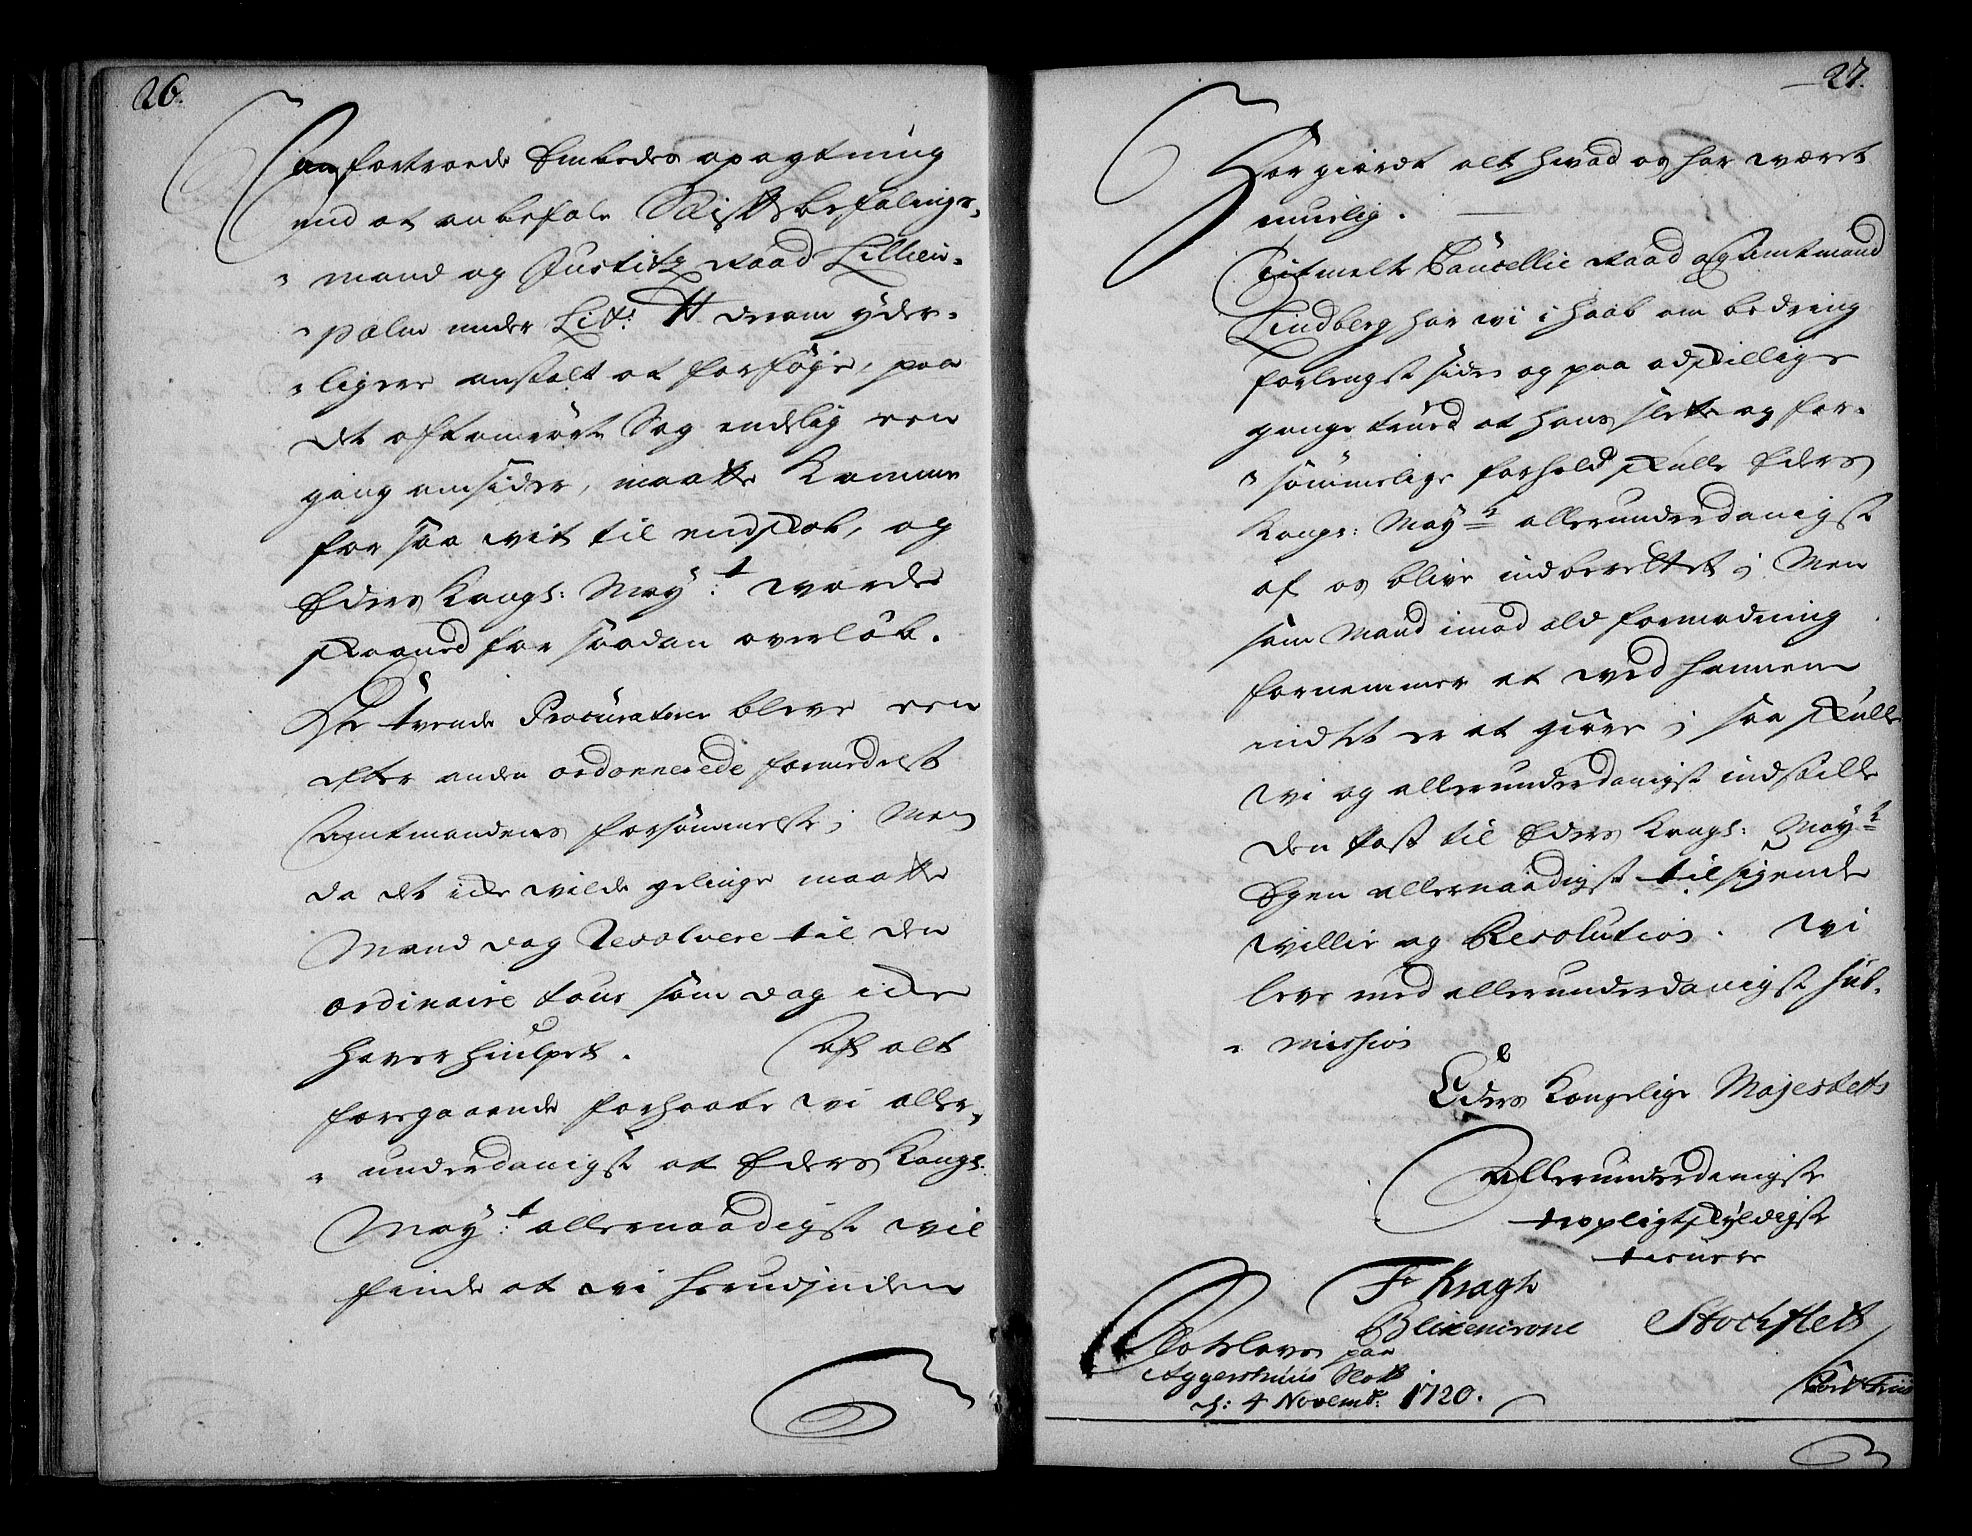 26.
anfortroede Embedes opagtning
end at anbefale Stiftsbefalings-
mand og Justitz Raad Lillien-
pælm under Litt: H derom yder-
ligere anstalt at forføje, paa
det oftomrørte Sag endelig een
gang omsider, maatte komme
for saa vit til endskab, og
Eders Kongl: May:t worde
skaaned for saadan overløb.
De tvende Procuratorer bleve een
efter anden ordonnerede formedelst
Amtmandens forsømmelse; Men
da det icke wilde gelinge maatte
Mand dog Resolvere til den
ordinaire tour som dog icke
haver hiulpet. Aft alt
foregaaende forhaabe wi aller-
underdanigst at Eders Kongl:
May:t allernaadigst wil
finde at wi herudjnden
27.
Har giordt alt hvad os har wæret
muelig.
Bitmelte Cancellie Raad og Amtmand
Lindberg har wi i haab om bedring
forlengst siden og paa adskillige
gange truet at hans slette og for-
sømmelige forhold skulle Eders
Kongl: May:t allerunderdanigst
af os blive indberettet; Men
som Mand imod ald formodning
fornemmer at wed hannem
indtet er at giøre; saa skulle
wi og allerunderdanigst indstille
den Post til Eders Kongl: May:t
Egen allernaadigst tilsigende
willie og Resolution. wi
leve med allerunderdanigst sub-
mission
Eders Kongelige Majestets
Allerunderdanigste
troepligtskyldigste
tienere
Fr Kragh
Blixencrone Stockflett
Slotsloven paa
Aggershuus Slott
d: 4 Novemb: 1720.